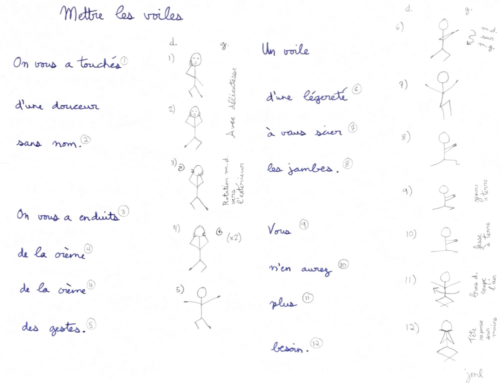 Mettre les voiles
d. g.
On vous a touchés ①
d'une douceur
sans nom. ②
On vous a enduits ③
de la crème ④
de la crème ④
des gestes. ⑤
1)
2)
Avec délicatesse
3)
Rotation m.d
vers
l'extérieur
4) (x2)
5)
Un voile
d'une légereté ⑥
à vous scier ⑦
les jambes. ⑧
Vous ⑨
n'en aurez ⑩
plus ⑪
besoin. ⑫
d. g.
6)
7)
8)
9)
genou
à terre
10)
fesse
à terre
11)
12)
Tête
repose
sur
mains